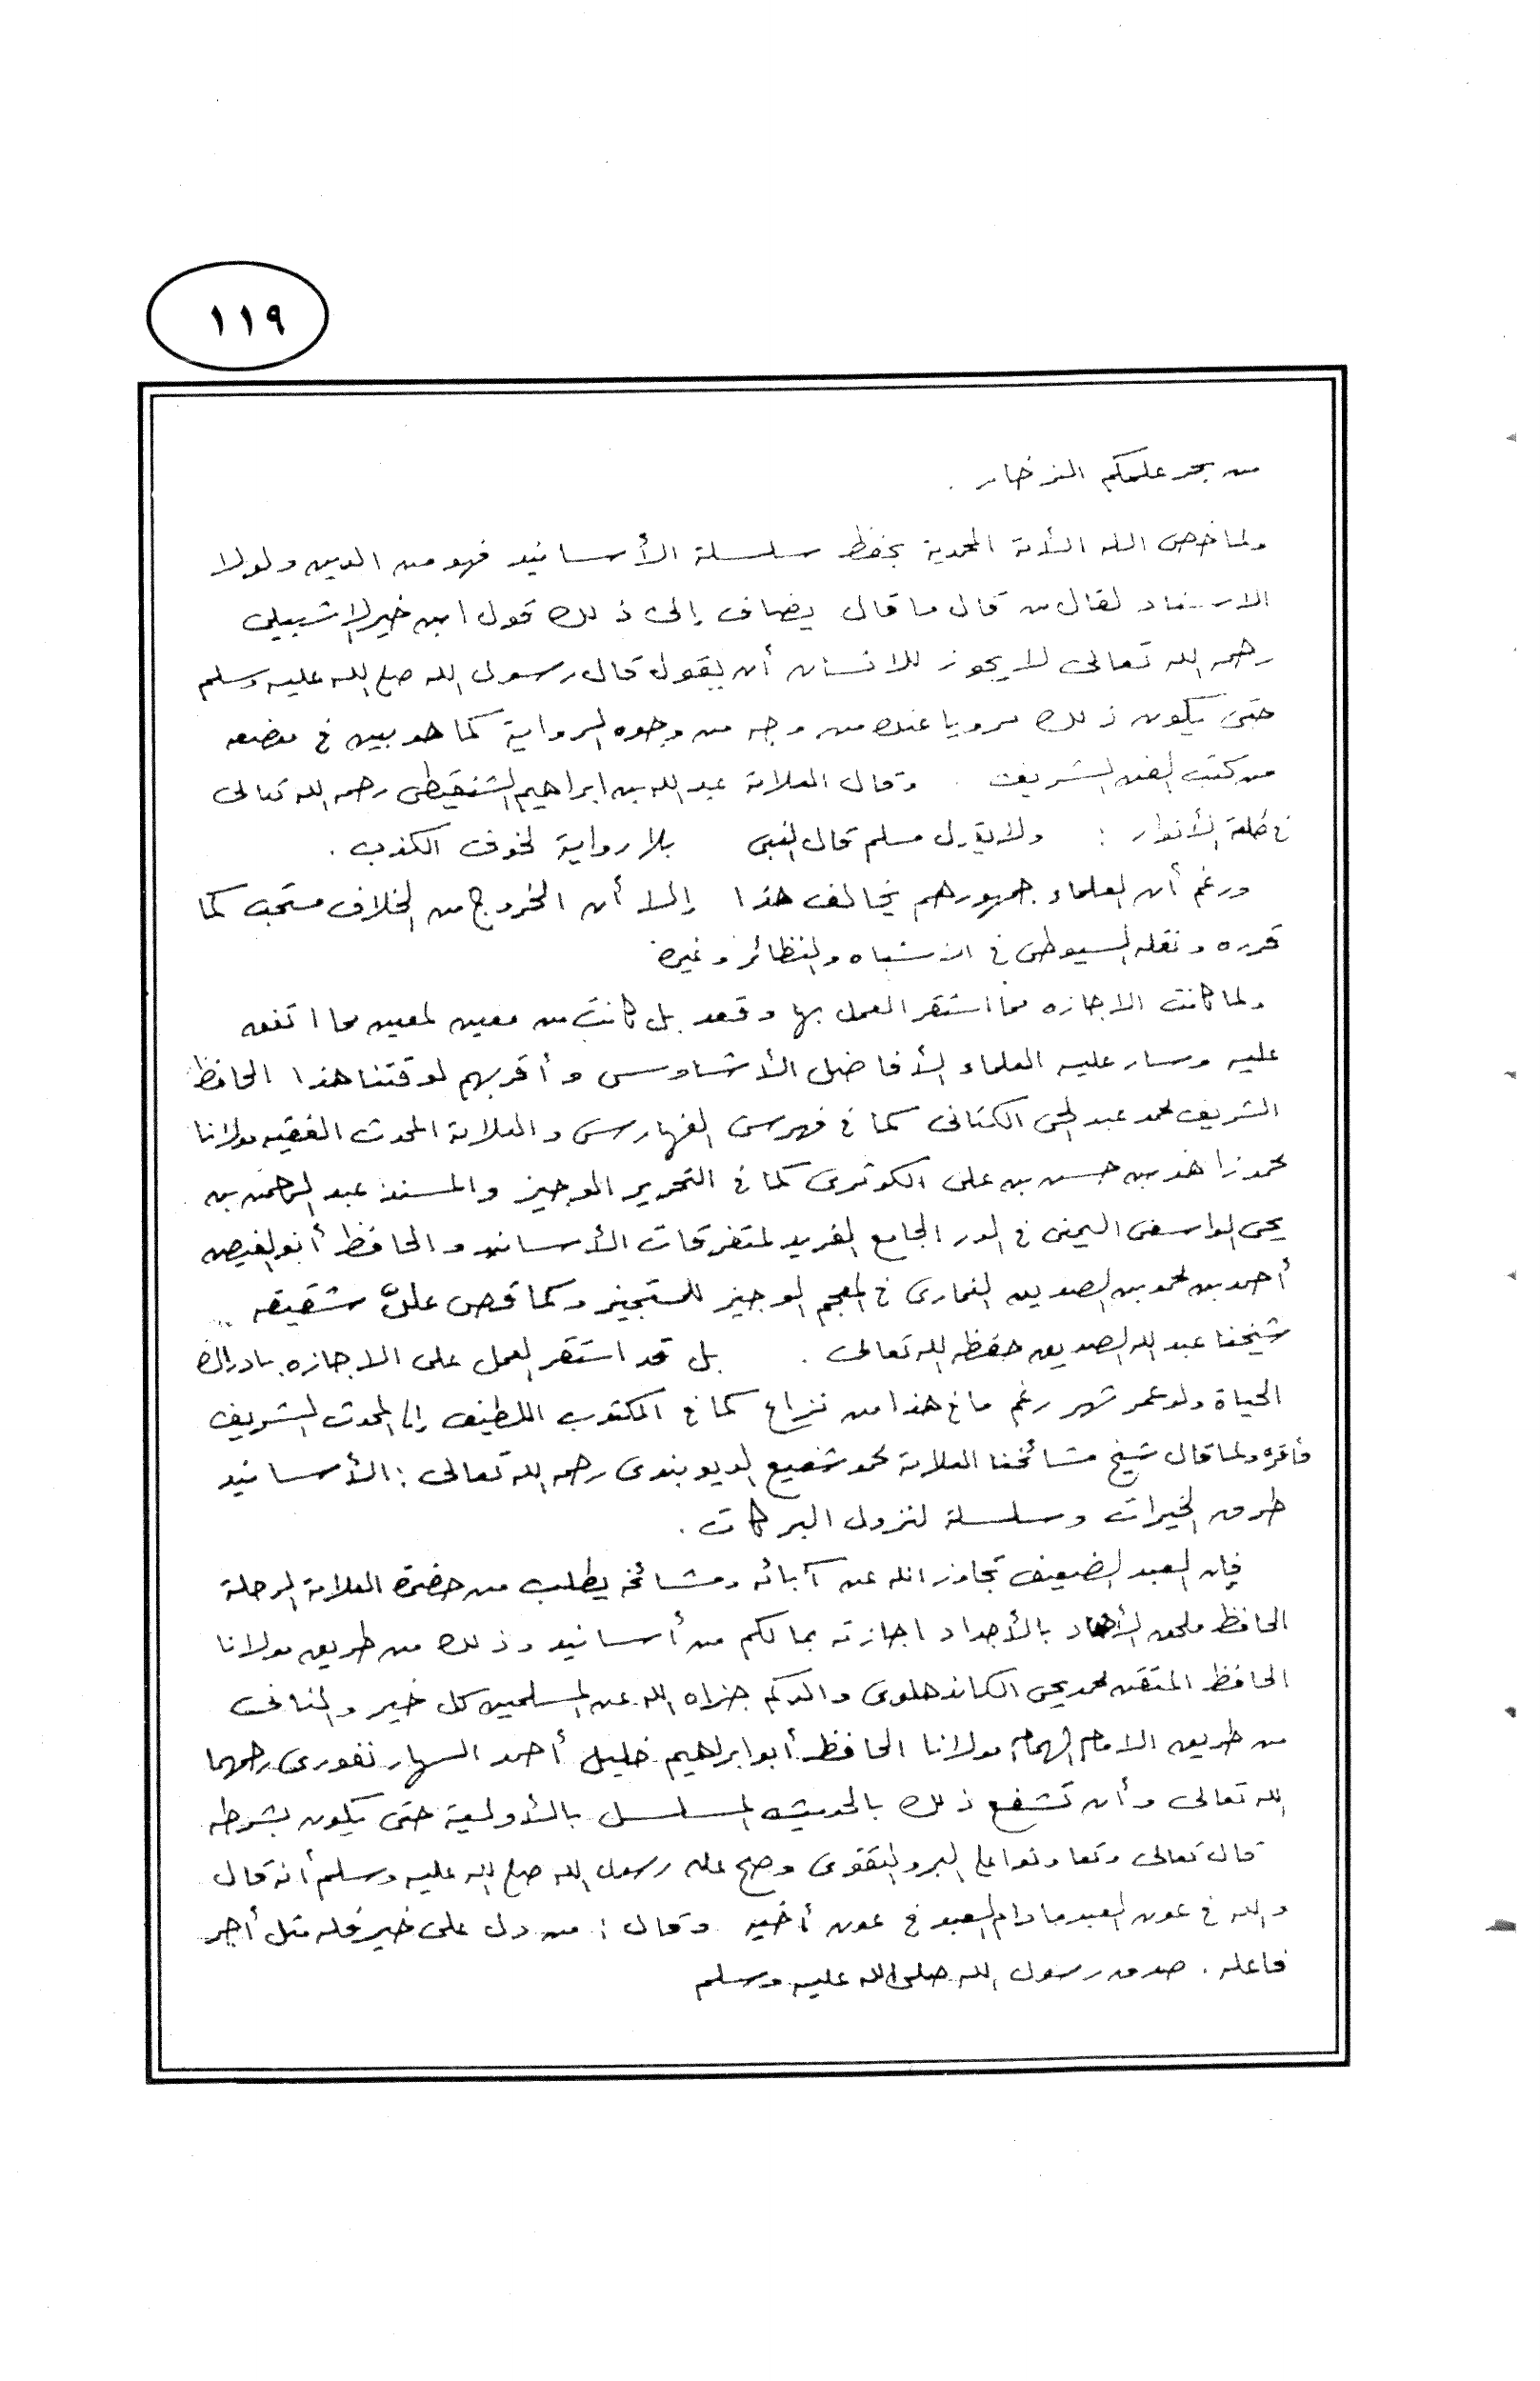 ١١٩
من بحر علمكم الزخار .
ولما خص الله الأمة المحمدية بحفظ سلسلة الأسانيد فهو من الدين ولولا
الاسناد لقال من قال ما قال يضاف إلى ذلك قول ابن خير الإشبيلى
رحمه الله تعالى لا يجوز للانسان أن يقول قال رسول الله صلى الله عليه وسلم
حتى يكون ذلك مرويا عنده من وجه من وجوه الرواية كما هو بين فى موضعه
من كتب الفن الشريف . وقال العلامة عبد الله بن ابراهيم الشنقيطى رحمه الله تعالى
فى طلعة الأنوار : ولا يقول مسلم قال النبى بلا رواية لخوف الكذب .
ورغم أن العلماء جمهورهم يخالف هذا إلا أن الخروج من الخلاف مستحب كما
قرره ونقله السيوطى فى الأشباه والنظائر وغيره
ولما كانت الاجازه مما استقر العمل بها وقعد بل كانت من معين لمعين مما اتفق
عليه وسار عليه العلماء الأفاضل الأشاوس وأقربهم لوقتنا هذا الحافظ
الشريف محمد عبد الحى الكتانى كما فى فهرس الفهارس والعلامة المحدث الفقيه مولانا
محمد زاهد بن حسن بن على الكوثرى كما فى التحرير الوجيز والمسند عبد الرحمن بن
يحيى الواسعى اليمنى فى الدر الجامع الفريد لمتفرقات الأسانيد والحافظ أبو الفيض
أحمد بن محمد بن الصديق الغمارى فى المعجم الوجيز للمستجيز وكما قص علىّ شقيقه
شيخنا عبد الله الصديق حفظه الله تعالى . بل قد استقر العمل على الاجازه بادراك
الحياة ولو عمر شهر رغم ما فى هذا من نزاع كما فى المكتوب اللطيف إلى المحدث الشريف
فأقره ولما قال شيخ مشائخنا العلامة محمد شفيع الديوبندى رحمه الله تعالى : الأسانيد
طرق الخيرات وسلسلة لنزول البركات .
فإن العبد الضعيف تجاوز الله عن آبائه ومشائخه يطلب من حضرة العلامة الرحلة
الحافظ ملحق الأحفاد بالأجداد اجازته بما لكم من أسانيد وذلك من طريق مولانا
الحافظ المتقن محمد يحيى الكاندهلوى والدكم جزاه الله عن المسلمين كل خير والثانى
من طريق الامام الهمام مولانا الحافظ أبو ابراهيم خليل أحمد السهارنفورى رحمهما
الله تعالى وأن تشفع ذلك بالحديث المسلسل بالأولية حتى يكون بشرطه
قال تعالى وتعاونوا على البر والتقوى وصح عن رسول الله صلى الله عليه وسلم أنه قال
والله فى عون العبد ما دام العبد فى عون أخيه وقال : من دل على خير فله مثل أجر
فاعله . صدق رسول الله صلى الله عليه وسلم